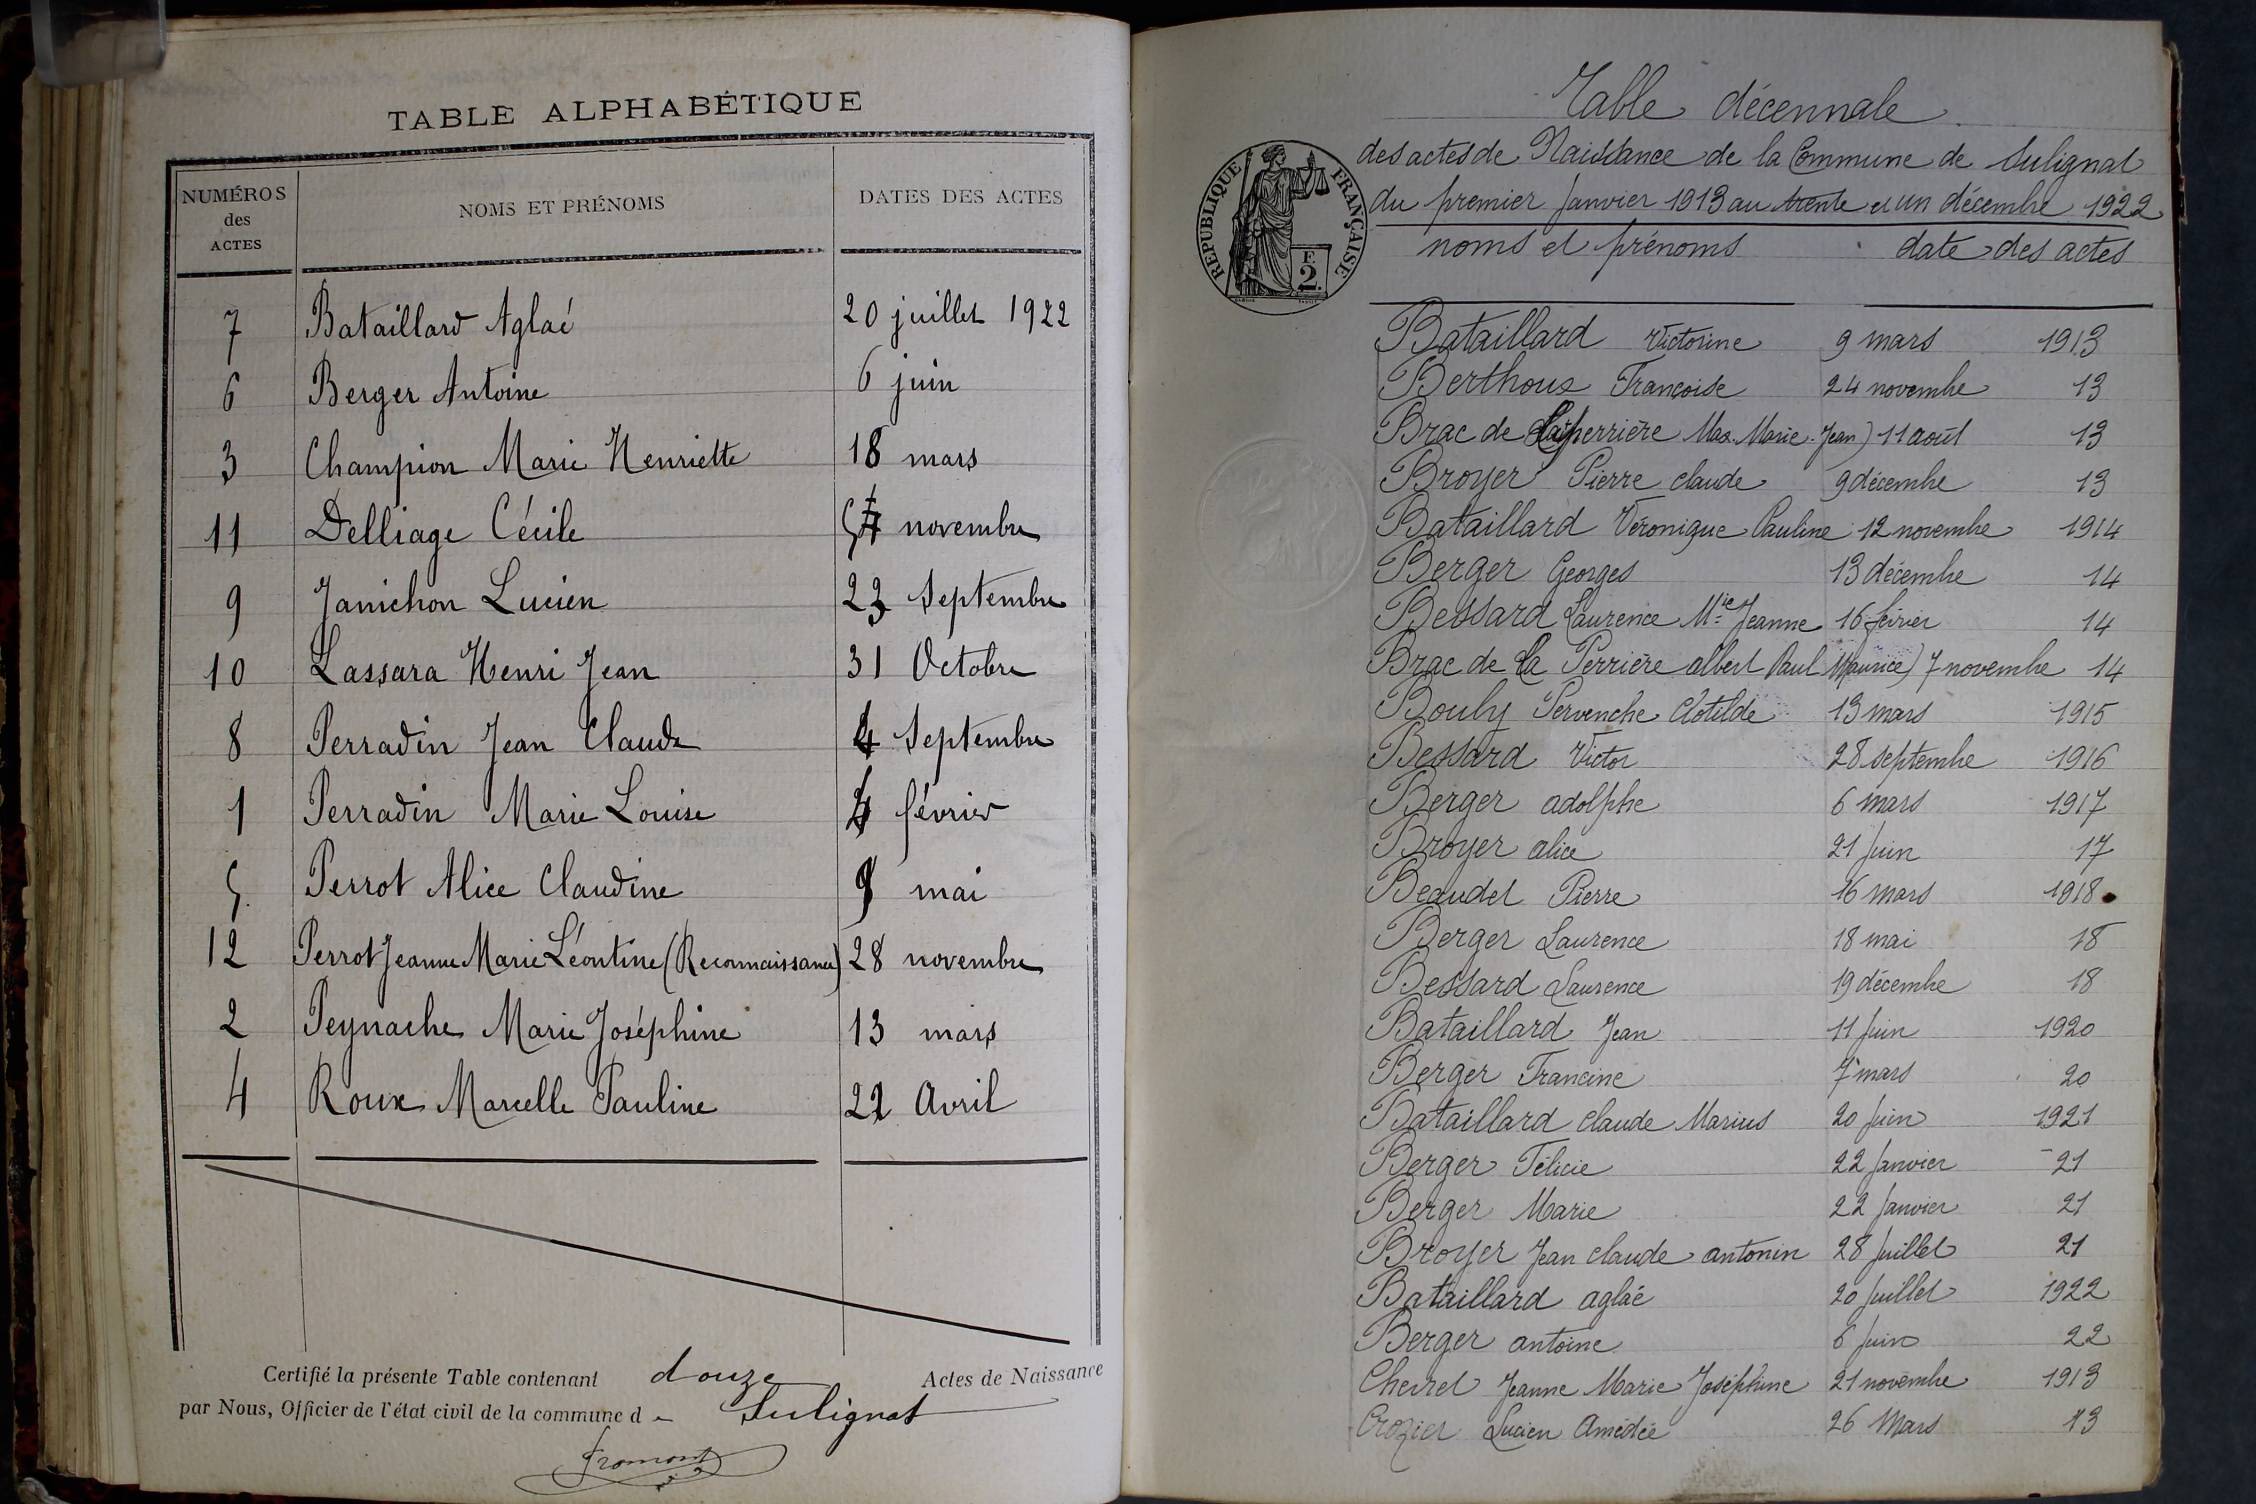 TABLE ALPHABÉTIQUE
NUMÉROS des ACTES NOMS ET PRÉNOMS DATES DES ACTES
7 Bataillard Aglaé 20 juillet 1922
6 Berger Antoine 6 juin
3 Champion Marie Henriette 18 mars
11 Delliage Cécile novembre
9 Janichon Lucien 23 Septembre
10 Lassara Henri Jean 31 Octobre
8 Perradin Jean Claude 4 Septembre
1 Perradin Marie Louise février
5 Perrot Alice Claudine 9 mai
12 Perrot Jeanne Marie Léontine (Reconnaissance) 28 novembre
2 Peynache Marie Joséphine 13 mars
4 Roux Marcelle Pauline 22 Avril
Certifié la présente Table contenant douze Actes de Naissance
par Nous, Officier de l'état civil de la commune de Sulignat
Fromont
Table décennale
des actes de Naissance de la Commune de Sulignat
du premier Janvier 1913 au trente et un décembre 1922
RÉPUBLIQUE FRANÇAISE
F.
2.
noms et prénoms date des actes
Bataillard Victorine 9 mars 1913
Berthoux Françoise 24 novembre 13
Brac de Laperrière Max. Marie. Jean) 11 août 13
Broyer Pierre claude 9 décembre 13
Bataillard Véronique Pauline 12 novembre 1914
Berger Georges 13 décembre 14
Bessard Laurence Mie Jeanne 16 févier 14
Brac de La Perrière albert Paul Maurice) 7 novembre 14
Bouly Pervenche Clotilde 13 mars 1915
Bessard Victor 28 septembre 1916
Berger adolphe 6 mars 1917
Broyer alice 21 Juin 17
Beaudet Pierre 16 mars 1918
Berger Laurence 18 mai 18
Bessard Laurence 19 décembre 18
Bataillard Jean 11 Juin 1920
Berger Francine 7 mars 20
Bataillard claude Marius 20 Juin 1921
Berger Félicie 22 Janvier 21
Berger Marie 22 Janvier 21
Broyer Jean claude antonin 28 Juillet 21
Bataillard aglaé 20 Juillet 1922
Berger antoine 6 Juin 22
Chevret Jeanne Marie Joséphine 21 novembre 1913
Crozier Lucien Amédée 26 Mars 13